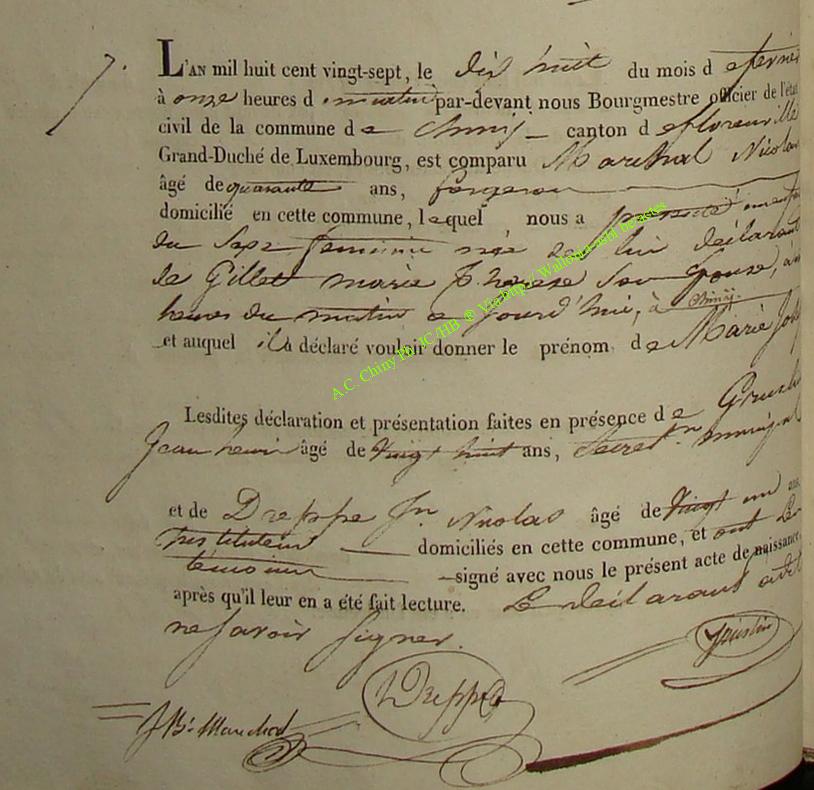 7.
L'AN mil huit cent vingt-sept, le dix huit du mois de fevrier
à onze heures du matin par-devant nous Bourgmestre officier de l'état
civil de la commune de Chiny canton de florenville
Grand-Duché de Luxembourg, est comparu Marchal Nicolas
âgé de quarante ans, forgeron
domicilié en cette commune, lequel nous a présenté un enfant
du Sexe feminin née de lui déclarant
de Gillet marie Therese Son Epouse, à
heures du matin ce jourd'hui, à Chiny.
et auquel il a déclaré vouloir donner le prénom de Marie
Lesdites déclaration et présentation faites en présence de
Jean henri âgé de Vingt huit ans, Secret.re
et de Dreppe Jn Nicolas âgé de Vingt un ans
Instituteur domiciliés en cette commune, et ont Les
témoins signé avec nous le présent acte de naissance
après qu'il leur en a été fait lecture. Le déclarant
ne Savoir Signer.
Dreppe
A.C. Chiny Ph JC/HB ® Viabup / Wallonia asbl